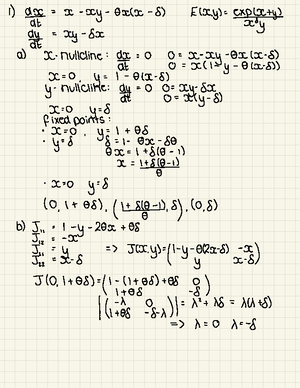 1) dx/dt = x - xy - θx(x - δ)    E(x,y) = exp(x+y)/x^δ y
dy/dt = xy - δx
a) x-nullcline: dx/dt = 0   0 = x - xy - θx(x-δ)
0 = x(1 - y - θ(x-δ))
x=0, y = 1 - θ(x-δ)
y-nullcline: dy/dt = 0   0 = xy - δx
0 = x(y-δ)
x=0   y=δ
fixed points:
• x=0, y = 1 + θδ
• y=δ   δ = 1 - θx - δθ
θx = 1 + δ(θ-1)
x = 1+δ(θ-1)/θ
• x=0   y=δ
(0, 1+θδ), (1+δ(θ-1)/θ, δ), (0,δ)
b) J₁₁ = 1 - y - 2θx + θδ
J₁₂ = -x
J₂₁ = y   => J(x,y) = (1-y-θ(2x-δ)   -x
J₂₂ = x-δ   y   x-δ)
J(0, 1+θδ) = (1 - (1+θδ) + θδ   0
1+θδ   -δ)
|(-λ   0
1+θδ   -δ-λ)| = λ² + λδ = λ(λ+δ)
=> λ = 0   λ = -δ